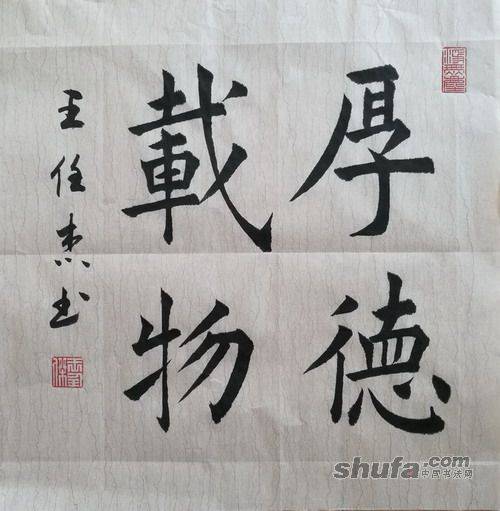 厚德
載物
王任杰书
shufa.com
中国书法网